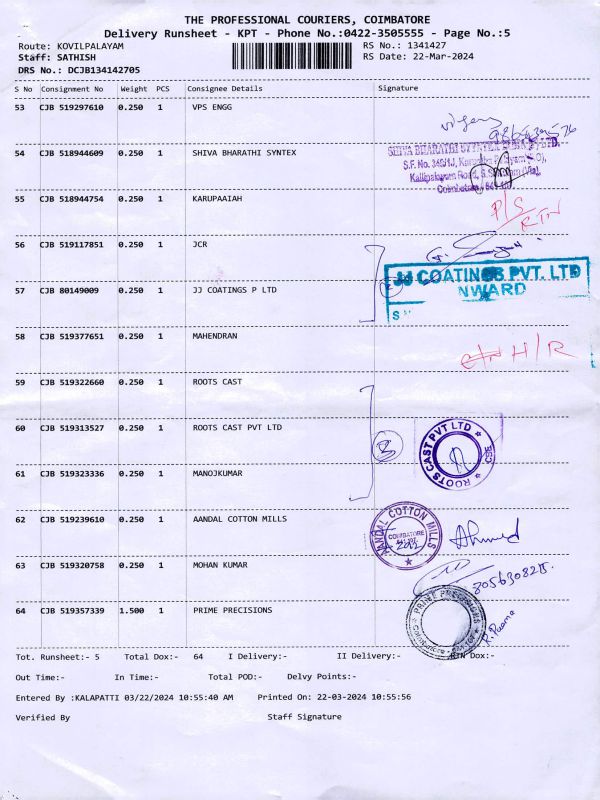 THE PROFESSIONAL COURIERS, COIMBATORE
Delivery Runsheet - KPT - Phone No.:0422-3505555 - Page No.:5
Route: KOVILPALAYAM RS No.: 1341427
Staff: SATHISH RS Date: 22-Mar-2024
DRS No.: DCJB134142705
S No Consignment No Weight PCS Consignee Details Signature
53 CJB 519297610 0.250 1 VPS ENGG
54 CJB 518944609 0.250 1 SHIVA BHARATHI SYNTEX
SHIVA BHARATHI
55 CJB 518944754 0.250 1 KARUPAAIAH
P/S
RTN
56 CJB 519117851 0.250 1 JCR
57 CJB 80149009 0.250 1 JJ COATINGS P LTD
JJ COATINGS PVT. LTD
INWARD
58 CJB 519377651 0.250 1 MAHENDRAN
H/R
59 CJB 519322660 0.250 1 ROOTS CAST
60 CJB 519313527 0.250 1 ROOTS CAST PVT LTD
3
ROOTS CAST PVT LTD
61 CJB 519323336 0.250 1 MANOJKUMAR
62 CJB 519239610 0.250 1 AANDAL COTTON MILLS
AANDAL COTTON MILLS
COIMBATORE
Ahmed
63 CJB 519320758 0.250 1 MOHAN KUMAR
64 CJB 519357339 1.500 1 PRIME PRECISIONS
PRIME PRECISIONS
Tot. Runsheet:- 5 Total Dox:- 64 I Delivery:- II Delivery:- RTN Dox:-
Out Time:- In Time:- Total POD:- Delvy Points:-
Entered By :KALAPATTI 03/22/2024 10:55:40 AM Printed On: 22-03-2024 10:55:56
Verified By Staff Signature